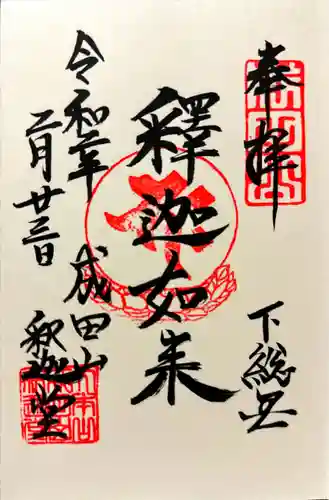 奉拝
下総国
釋迦如来
令和二年
二月廿三日
成田山
釈迦堂